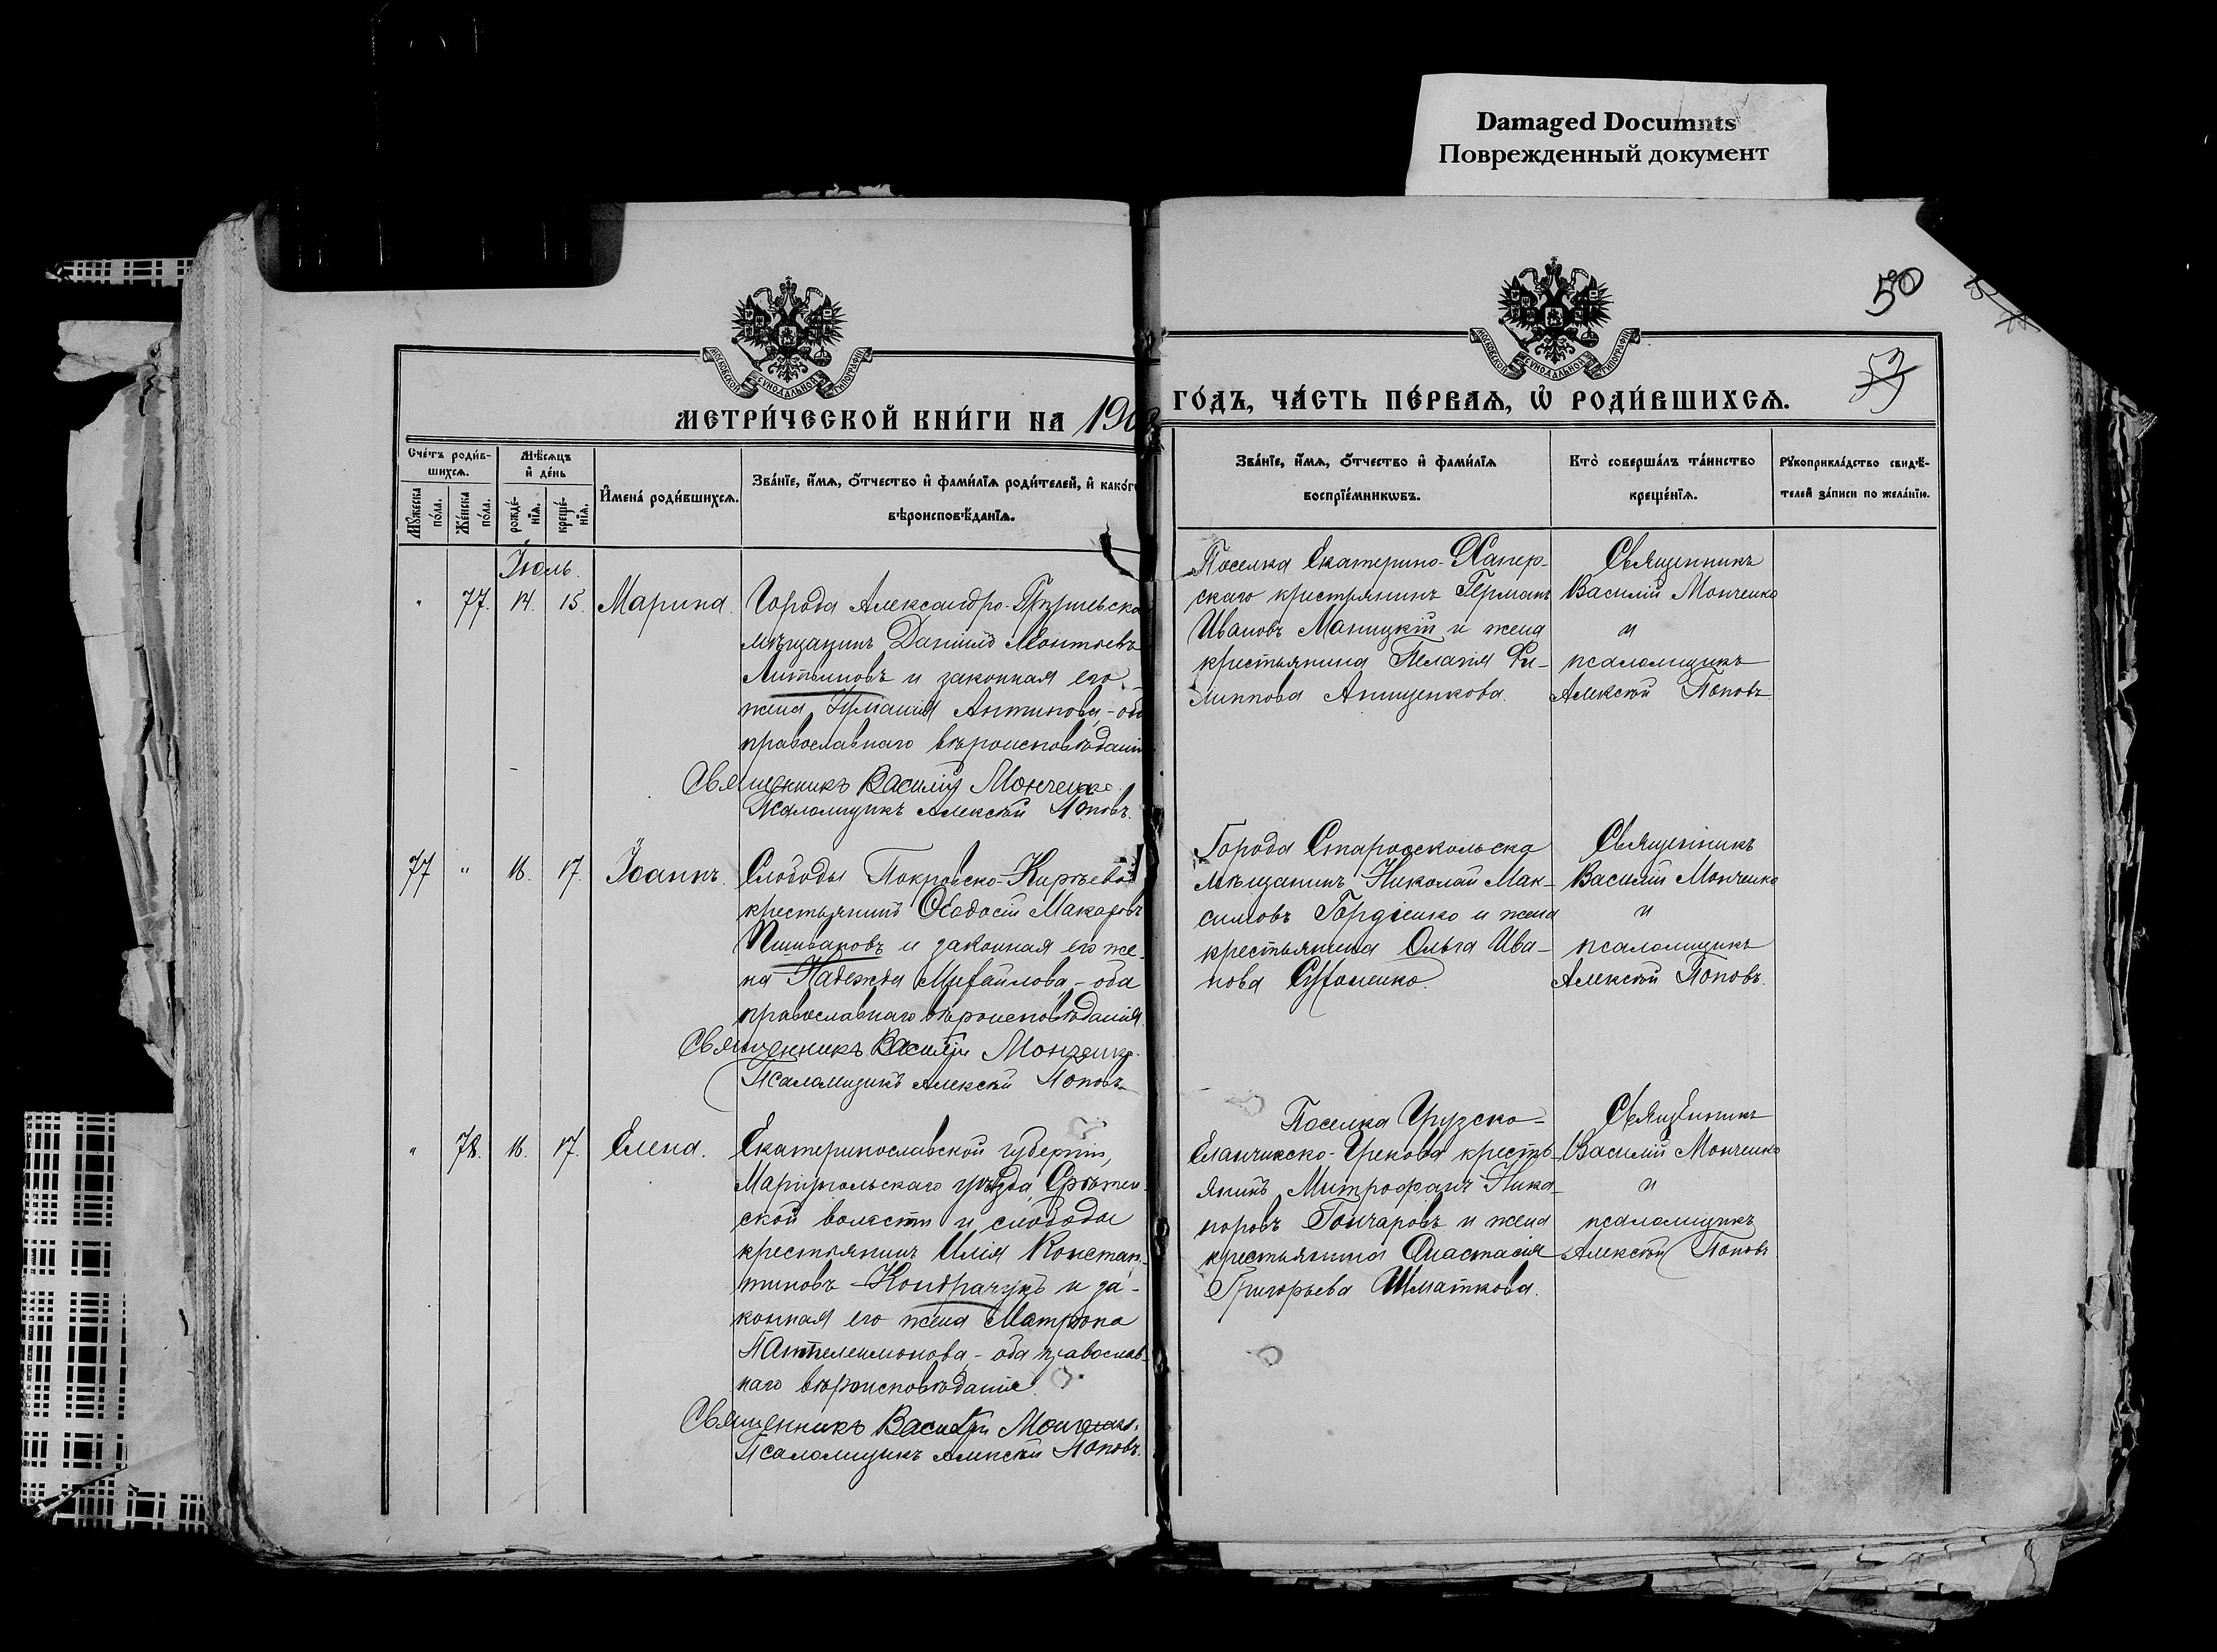 Damaged Documnts
Поврежденный документ
50
53
МОСКОВСКОЙ СѴНОДАЛЬНОЙ ТИПОГРАФІИ
МОСКОВСКОЙ СѴНОДАЛЬНОЙ ТИПОГРАФІИ
МЕТРИ́ЧЕСКОЙ КНИ́ГИ НА 190
ГО́ДЪ, ЧА́СТЬ ПЕ́РВАѦ, Ѡ РОДИ́ВШИХСѦ.
Сче́тъ роди́в-
шихсѧ.
Мꙋ́жеска по́ла.
Же́нска по́ла.
Мѣ́сѧцъ
и҆ де́нь
рожде́-
нїѧ.
креще́-
нїѧ.
И҆мена̀ роди́вшихсѧ.
Зва́нїе, и҆́мѧ, ѻ҆́тчество и҆ фами́лїѧ роди́телей, и҆ како́гѡ
вѣроисповѣ́данїѧ.
Зва́нїе, и҆́мѧ, ѻ҆́тчество и҆ фами́лїѧ
воспрїе́мникѡвъ.
Кто̀ соверша́лъ та́инство
креще́нїѧ.
Рꙋкоприкла́дство свидѣ́-
телей за́писи по жела́нїю.
Іюль.
" 77. 14. 15. Марина.
Города Александро-Грушевска
мѣщанинъ Даніилъ Леонтьевъ
Литвиновъ и законная его
жена Антипова, - оба
православнаго вѣроисповѣданія
Священникъ Василій Монченко
Псаломщикъ Алексѣй Поповъ.
Поселка Екатерино-Хапер-
скаго крестьянинъ Германъ
Ивановъ Маницкій и жена
крестьянина Пелагія Фи-
липпова Анищенкова.
Священникъ
Василій Монченко
и
псаломщикъ
Алексѣй Поповъ.
77 " 16. 17. Іоаннъ.
Слободы Покровско-Кирѣевой
крестьянинъ Ѳеодосій Макаровъ
Пшиваровъ и законная его же-
на Надежда Михайлова, - оба
православнаго вѣроисповѣданія.
Священникъ Василій Монченко.
Псаломщикъ Алексѣй Поповъ.
Города Старооскольска
мѣщанинъ Николай Мак-
симовъ Гордіенко и жена
крестьянина Ольга Ива-
нова
Священникъ
Василій Монченко
и
псаломщикъ
Алексѣй Поповъ.
" 78. 16. 17. Елена.
Екатеринославской губерніи,
Маріупольскаго уѣзда, Срѣтен-
ской волости и слободы
крестьянинъ Илія Констан-
тиновъ Кондрачукъ и за-
конная его жена Матрона
Пантелеимонова, - оба православ-
наго вѣроисповѣданія.
Священникъ Василій Монченко.
Псаломщикъ Алексѣй Поповъ.
Поселка Грузско-
Еланчикско-Грекова кресть-
янинъ Митрофанъ Ника-
норовъ Гончаровъ и жена
крестьянина Анастасія
Григорьева Шматкова.
Священникъ
Василій Монченко
и
псаломщикъ
Алексѣй Поповъ